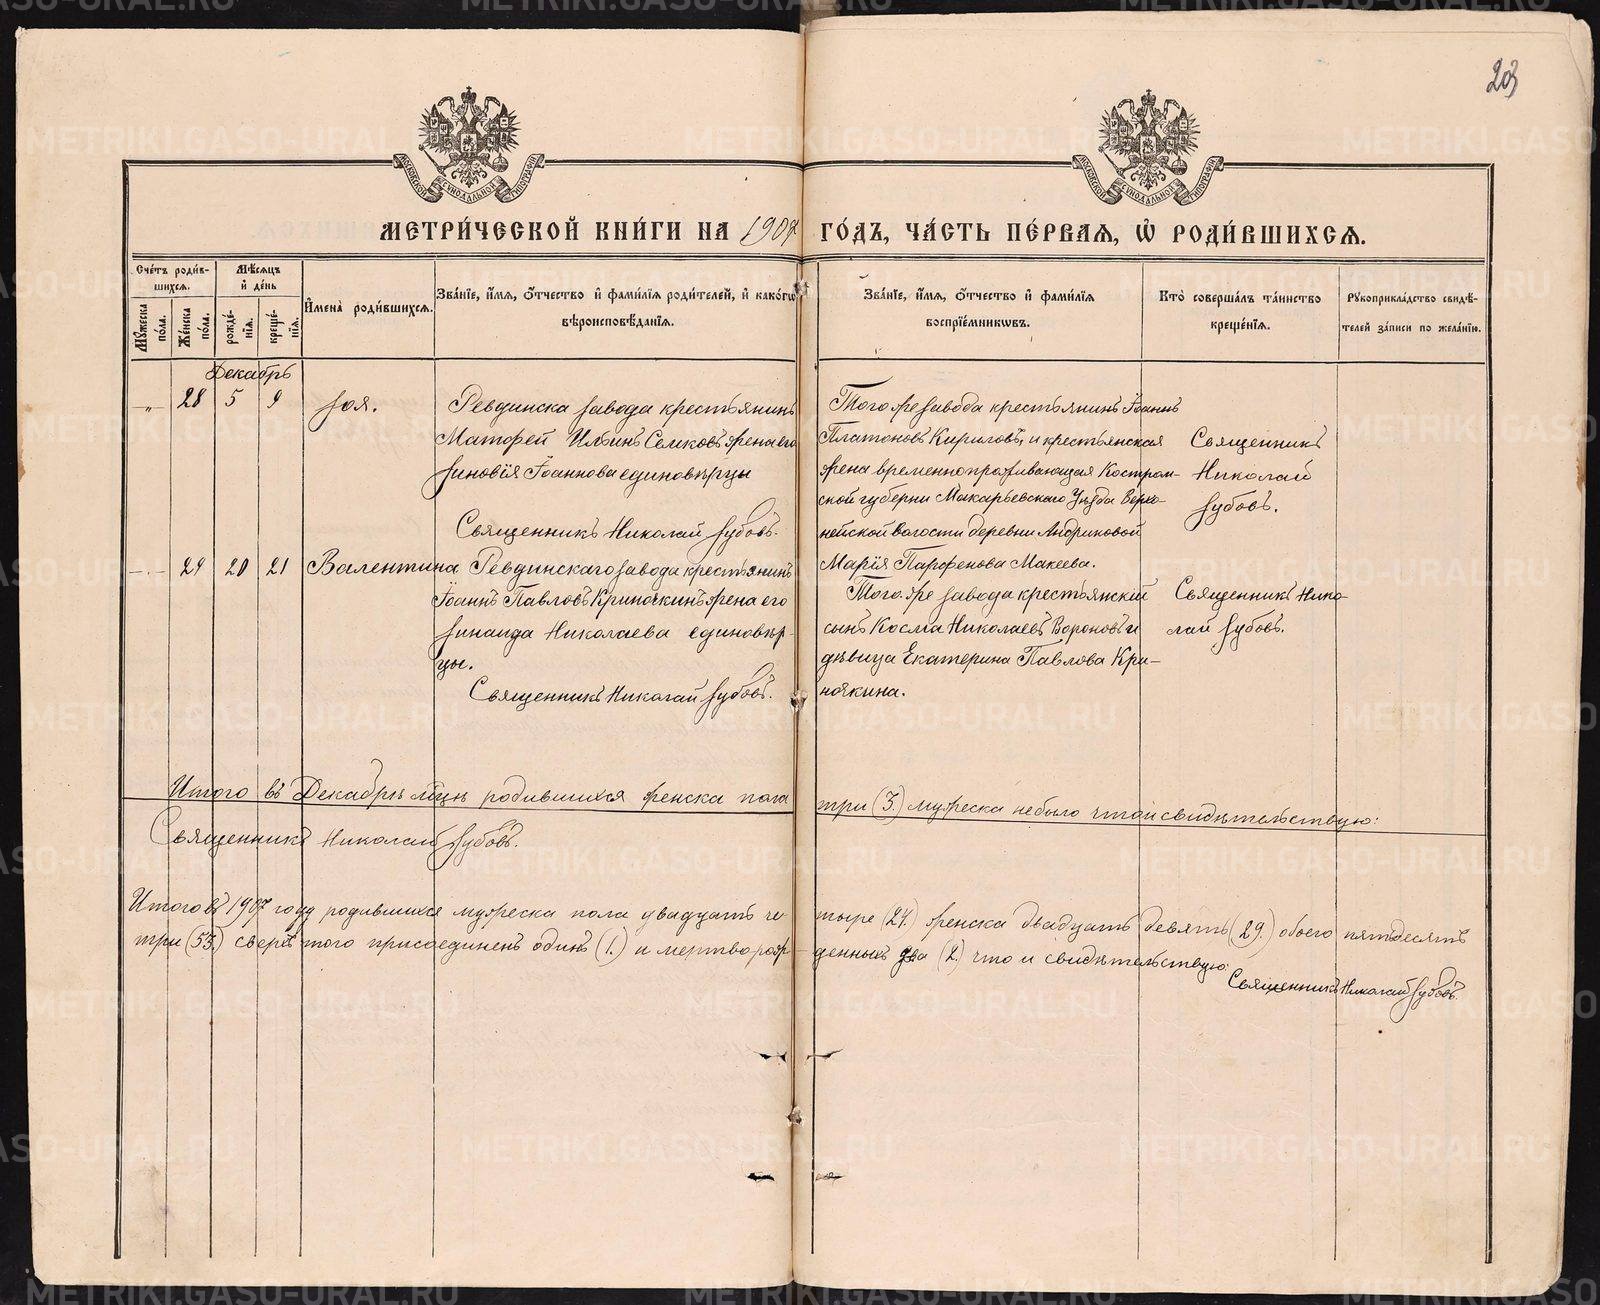 203
МОСКОВСКОЙ СѴНОДАЛЬНОЙ ТИПОГРАФІИ
МОСКОВСКОЙ СѴНОДАЛЬНОЙ ТИПОГРАФІИ
МЕТРИ́ЧЕСКОЙ КНИ́ГИ НА 1907 ГО́ДЪ, ЧА́СТЬ ПЕ́РВАЯ, Ѽ РОДИ́ВШИХСЯ.
Сче́тъ роди́в-
шихся.
Мꙋ́жеска по́ла.
Же́нска по́ла.
Мѣ́сяцъ
и҆ де́нь
рожде́-
нїя.
креще́-
нїя.
И҆мена̀ роди́вшихся.
Зва́нїе, и҆́мя, ѻ҆́тчество и҆ фами́лїя роди́телей, и҆ како́гѡ
вѣроисповѣ́данїя.
Зва́нїе, и҆́мя, ѻ҆́тчество и҆ фами́лїя
воспрїе́мникѡвъ.
Кто̀ соверша́лъ та́инство
креще́нїя.
Рꙋкоприкла́дство свидѣ́-
телей за́писи по жела́нїю.
Декабрь
„ 28 5 9 Зоя.
Ревдинска завода крестьянинъ
Матфей Ильинъ жена его
Зиновія Іоаннова единовѣрцы
Священникъ Николай Зубовъ.
Того же завода крестьянинъ Іоаннъ
Платоновъ Кириловъ, и крестьянская
жена временнопроживающая Костром-
ской губерни Макарьевскаго Уѣзда Верхо-
нейской волости деревни Андриковой
Марія Парфенова Макеева.
Священникъ
Николай
Зубовъ.
29 20 21 Валентина
Ревдинскаго завода крестьянинъ
Іоаннъ Павловъ Криночкинъ жена его
Зинаида Николаева единовѣр-
цы.
Священникъ Николай Зубовъ.
Того же завода крестьянскій
сынъ Косма Николаевъ Вороновъ и
дѣвица Екатерина Павлова Кри-
ночкина.
Священникъ Нико-
лай Зубовъ.
Итого въ Декабрѣ мцѣ родившихся женска пола три (3.) мужеска небыло что и свидѣтельствую:
Священникъ Николай Зубовъ.
Итого въ 1907 году родившихся мужеска пола двадцать че тыре (24.) женска двадцать девять (29.) обоего пятьдесятъ
три (53.) сверхъ того присоединенъ одинъ (1.) и мертворож- денныхъ два (2.) что и свидѣтельствую
Священникъ Николай Зубовъ.
METRIKI.GASO-URAL.RU